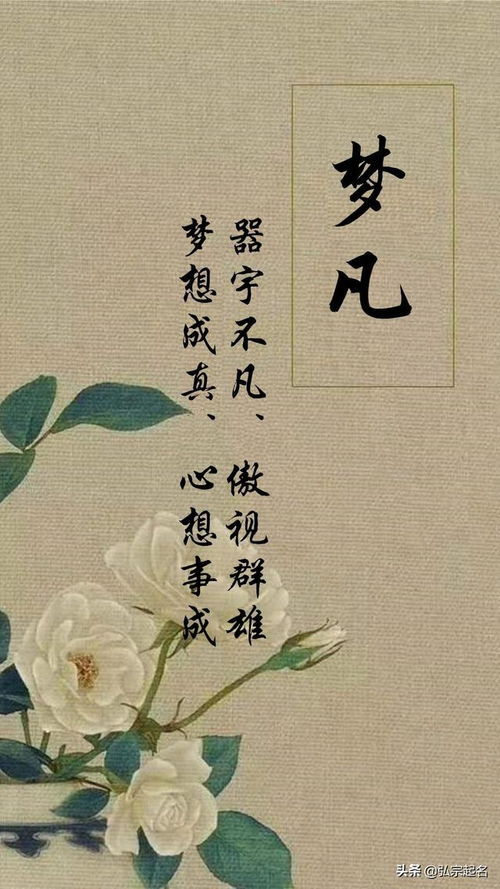 梦凡
器宇不凡、傲视群雄
梦想成真、心想事成
头条 @弘宗起名